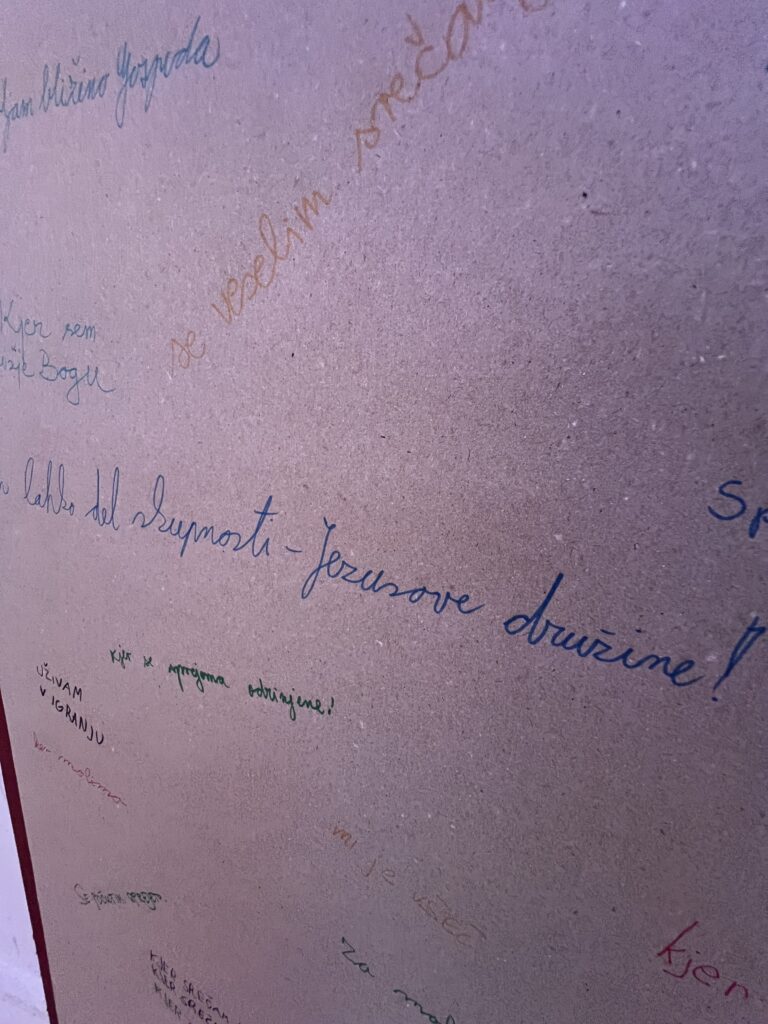 bližino Gospoda
se veselim
Kjer sem
Bogu
lahko del skupnosti - Jezusove družine!
kjer se sprejema odrinjene!
UŽIVAM
V IGRANJU
ker molimo
mi je všeč
za
kjer
KJER SREČAM
KJER
KJER